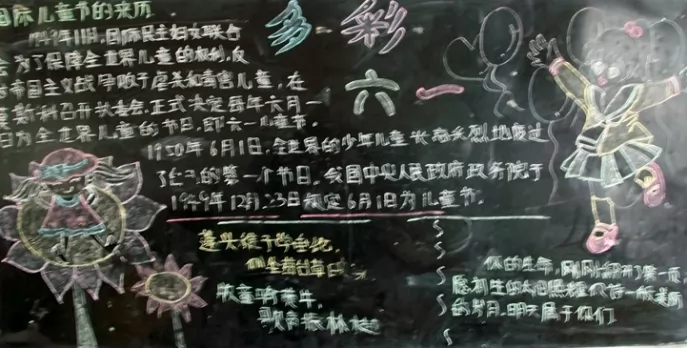 国际儿童节的来历
多彩
六一
1949年11月,国际民主妇女联合
会为了保障全世界儿童的权利,反
对帝国主义战争贩子虐杀和毒害儿童,在
莫斯科召开执委会,正式决定每年六月一
日为全世界儿童的节日,即六一儿童节。
1950年6月1日,全世界的少年儿童
烈地度过
了自己的第一个节日。我国中央人民政府政务院于
1949年12月23日规定6月1日为儿童节。
蓬头稚子学垂纶,
侧坐莓苔草
牧童骑黄牛,
歌声振林樾
你的生命,刚刚
的岁月,明天属于你们